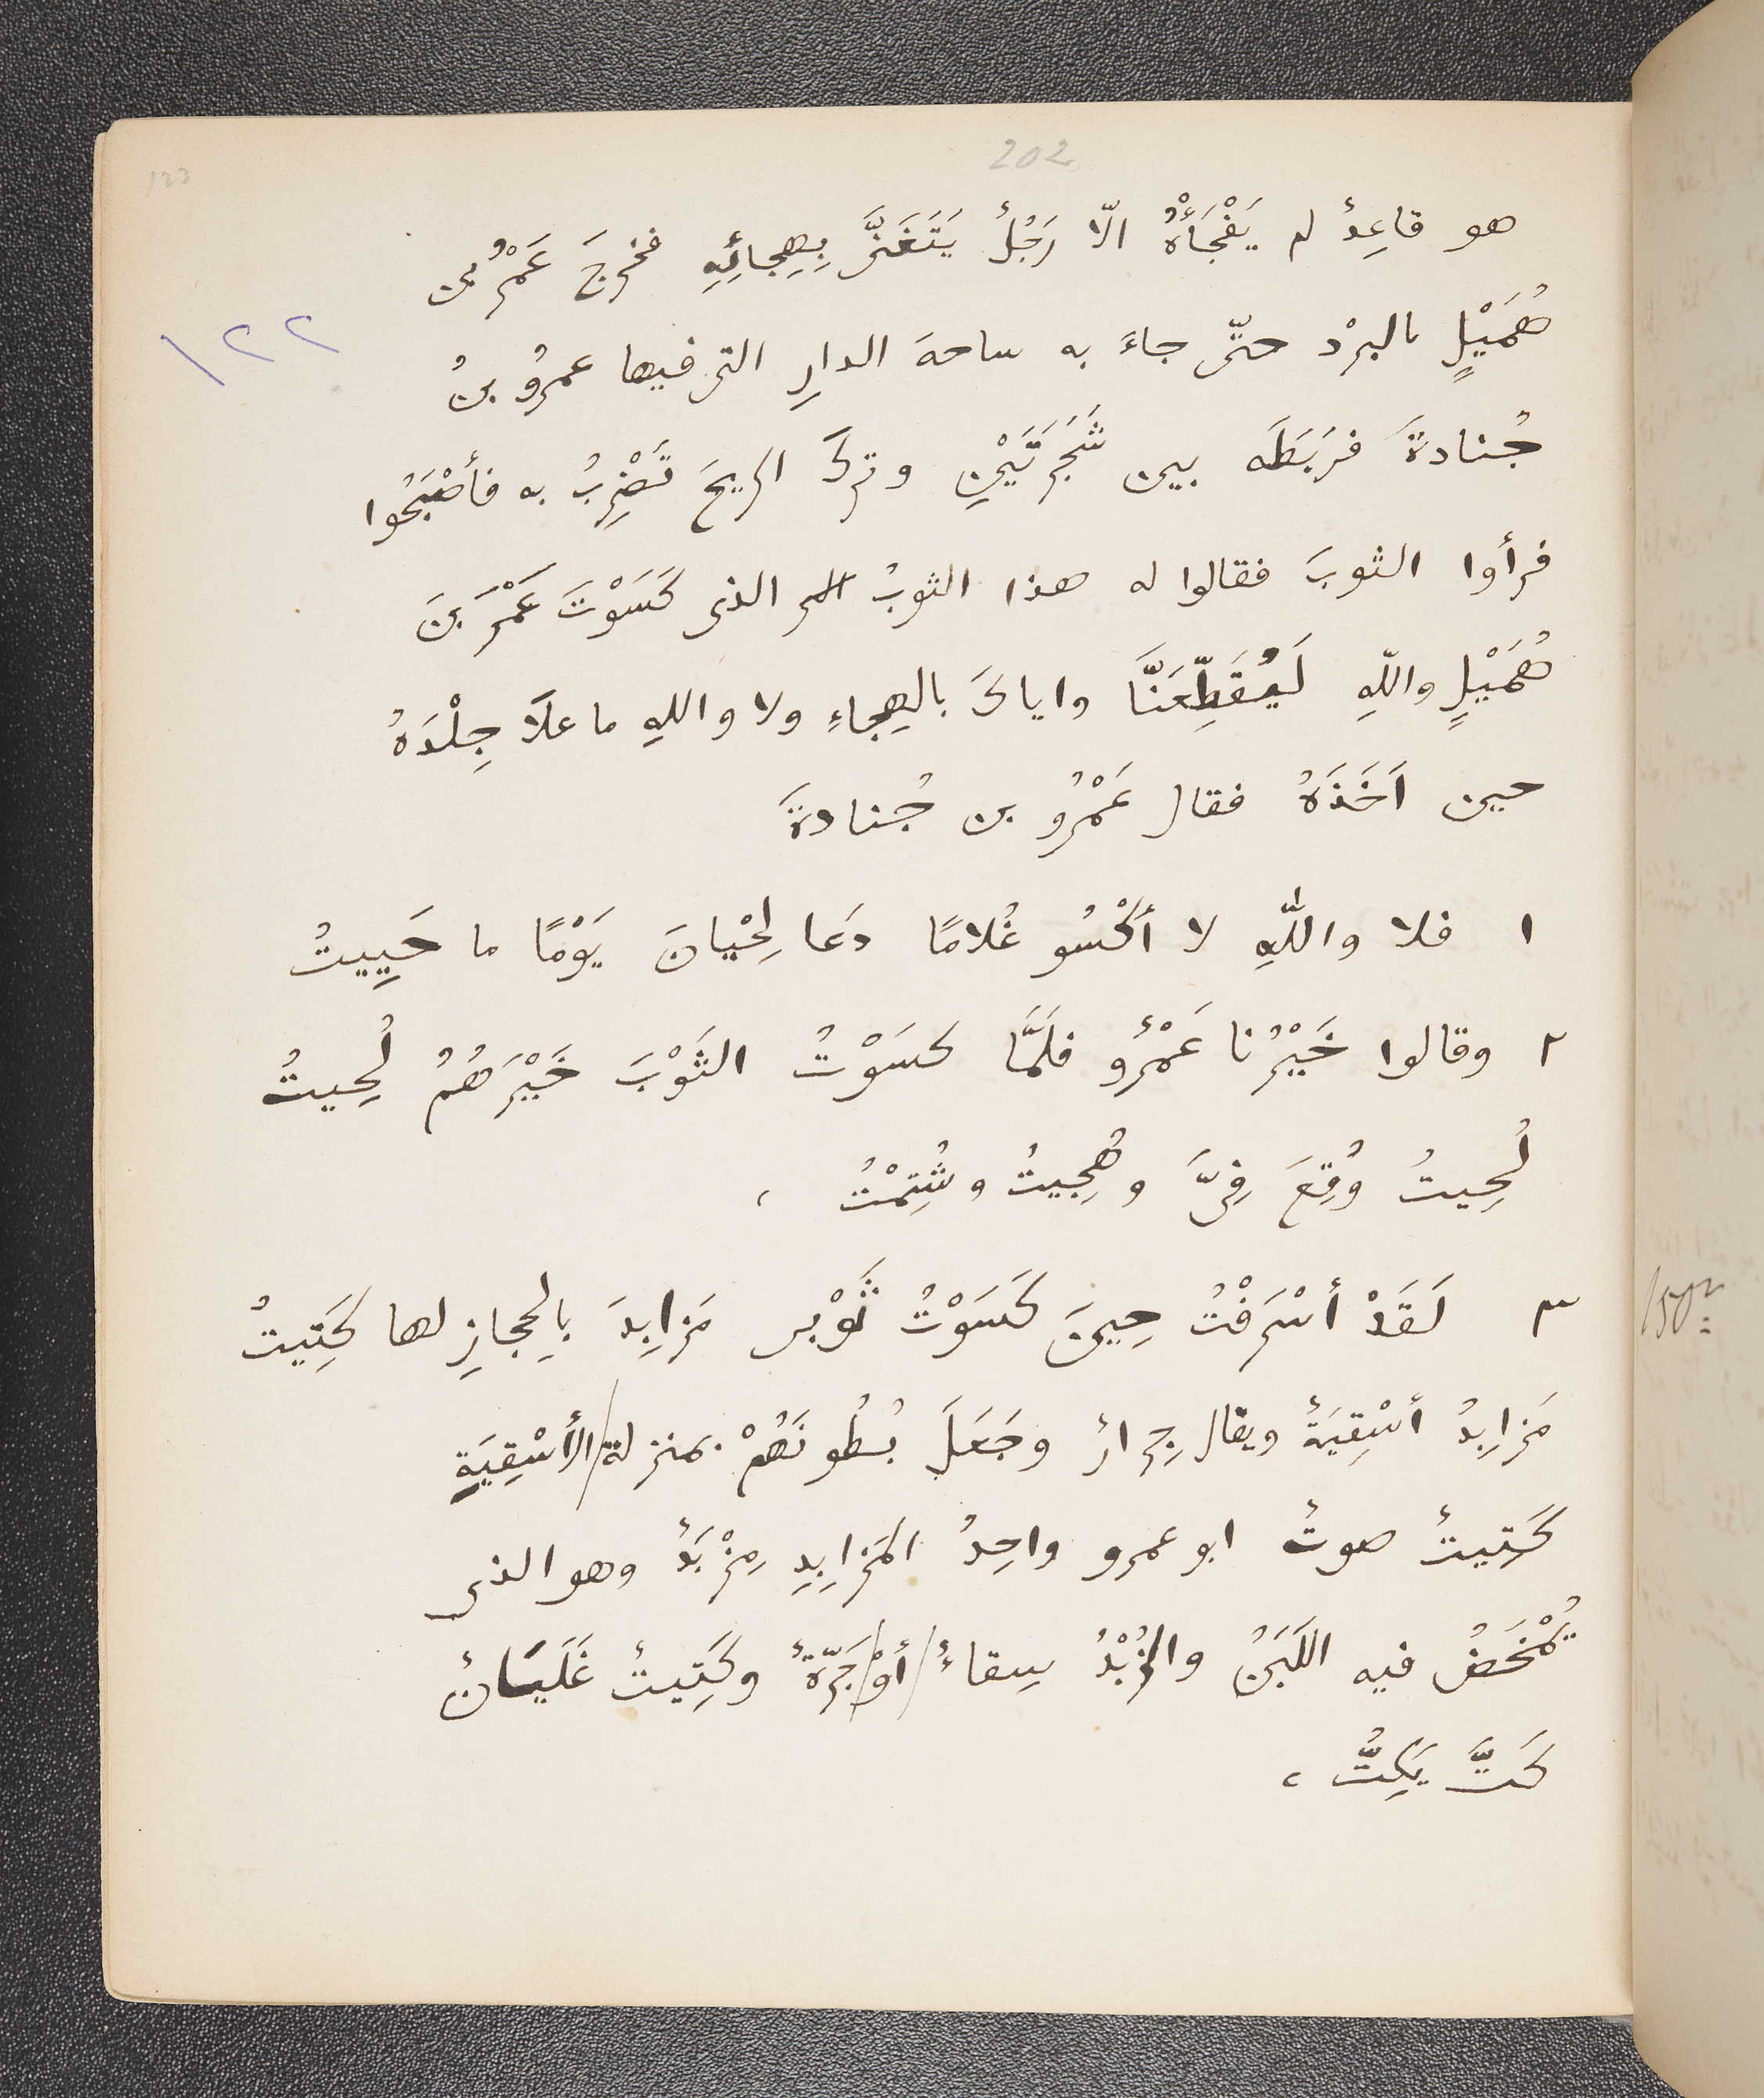 202
123
هو قاعِدٌ لم يَفْجَأْهُ الّا رَجُلٌ يَتَغَنَّى بِهِجائِهِ فخرجَ عَمْرُ بن
١٢٢
هُمَيْلٍ بالبرْد حتّى جاءَ به ساحة الدارِ التى فيها عمرُو بنُ
جُنادةَ فرَبَطَه بين شَجَرَتَيْنِ وتركَ الريحَ تَضْرِبُ به فأصْبَحُوا
فرأوا الثوبَ فقالوا له هذا الثوبُ الذى كَسَوْتَ عَمْرَ بنَ
هُمَيْلٍ واللّهِ لَيُقَطِّعَنَّا واياكَ بالهِجاءِ ولا واللهِ ما علَا جِلْدَهُ
حين اَخَذَهُ فقال عَمْرُو بن جُنادةَ
١ فلا واللّٰهِ لا أكْسُو غُلامًا دَعا لِحْيانَ يَوْمًا ما حَيِيتُ
٢ وقالوا خَيْرُنا عَمْرٌو فلَمَّا كسَوْتُ الثَوْبَ خَيْرَهُمُ لُحِيتُ
لُحِيتُ وُقِعَ فِىَّ وهُجِيتُ وشُتِمْتُ ،
٣ لَقَدْ أسْرَفْتُ حِينَ كَسَوْتُ ثَوْبى مَزابِدَ بالحِجازِ لها كَتِيتُ
مَزابِدُ أسْقِيَةٌ ويقال جِرارٌ وجَعَلَ بُطُونَهُمْ بمنزلة/الأسْقِيَةِ
كَتِيتٌ صوتٌ ابو عمرو واحِدُ المَزابِدِ مِزْبَدٌ وهو الذى
يُمْخَضُ فيه اللَبَنُ والزُبْدُ سِقاءٌ/أوْ/جَرّةٌ وكَتِيتٌ غَلَيَانٌ
كَتَّ يَكِتُّ ،